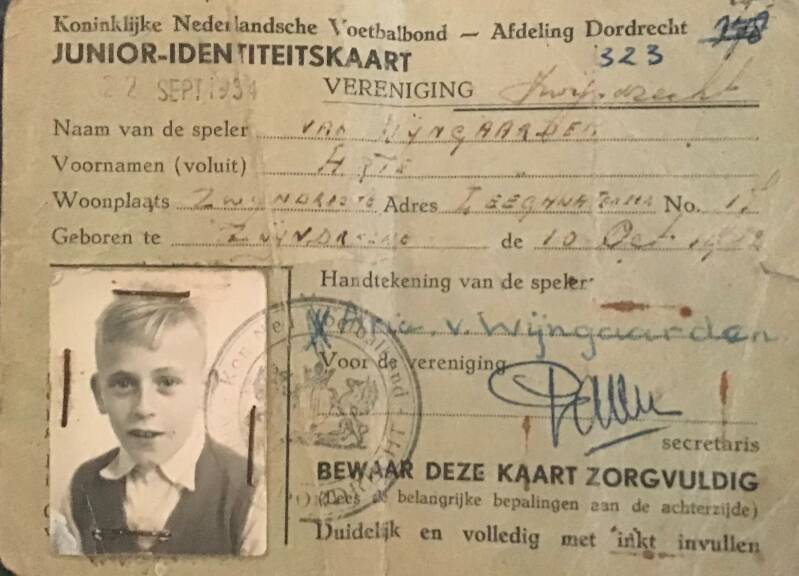 Koninklijke Nederlandsche Voetbalbond — Afdeling Dordrecht
JUNIOR-IDENTITEITSKAART 323
22 SEPT 1954 VERENIGING Zwijndrecht
Naam van de speler VAN WIJNGAARDEN
Voornamen (voluit)
Woonplaats Adres No.
Geboren te de 10 Oct
Handtekening van de speler
Arie v. Wijngaarden
Voor de vereniging
secretaris
BEWAAR DEZE KAART ZORGVULDIG
(Lees de belangrijke bepalingen aan de achterzijde)
Duidelijk en volledig met inkt invullen